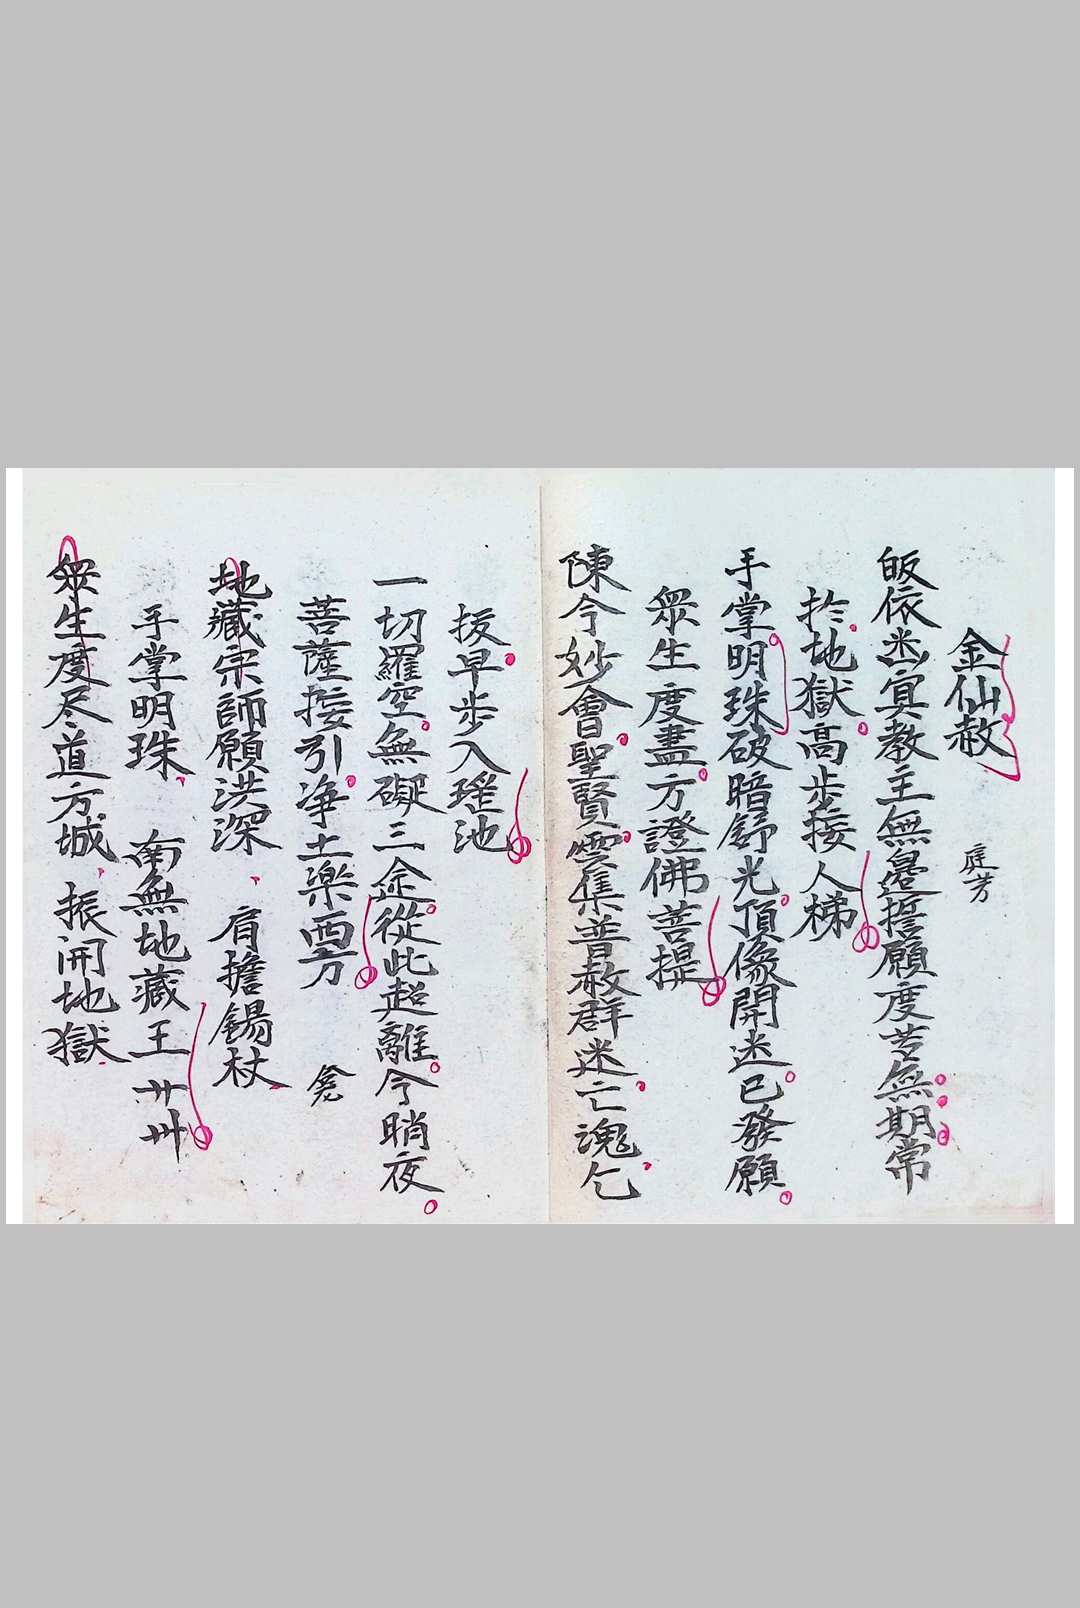 金仙赦 庭芳
皈依幽冥教主無邊誓願度苦無期常
扵地獄高步接人梯
手掌明珠破暗舒光頂像開迷已發願
眾生度盡方證佛菩提
陳今妙會聖賢雲集普赦群迷亡魂乞
拔早步入瑤池
一切羅空無礙三途從此超離今晭夜
菩薩接引净土楽西方
地藏宗師願洪深 肩擔錫杖
手掌明珠 南無地藏王 卄卅
眾生度尽道方城 振開地獄